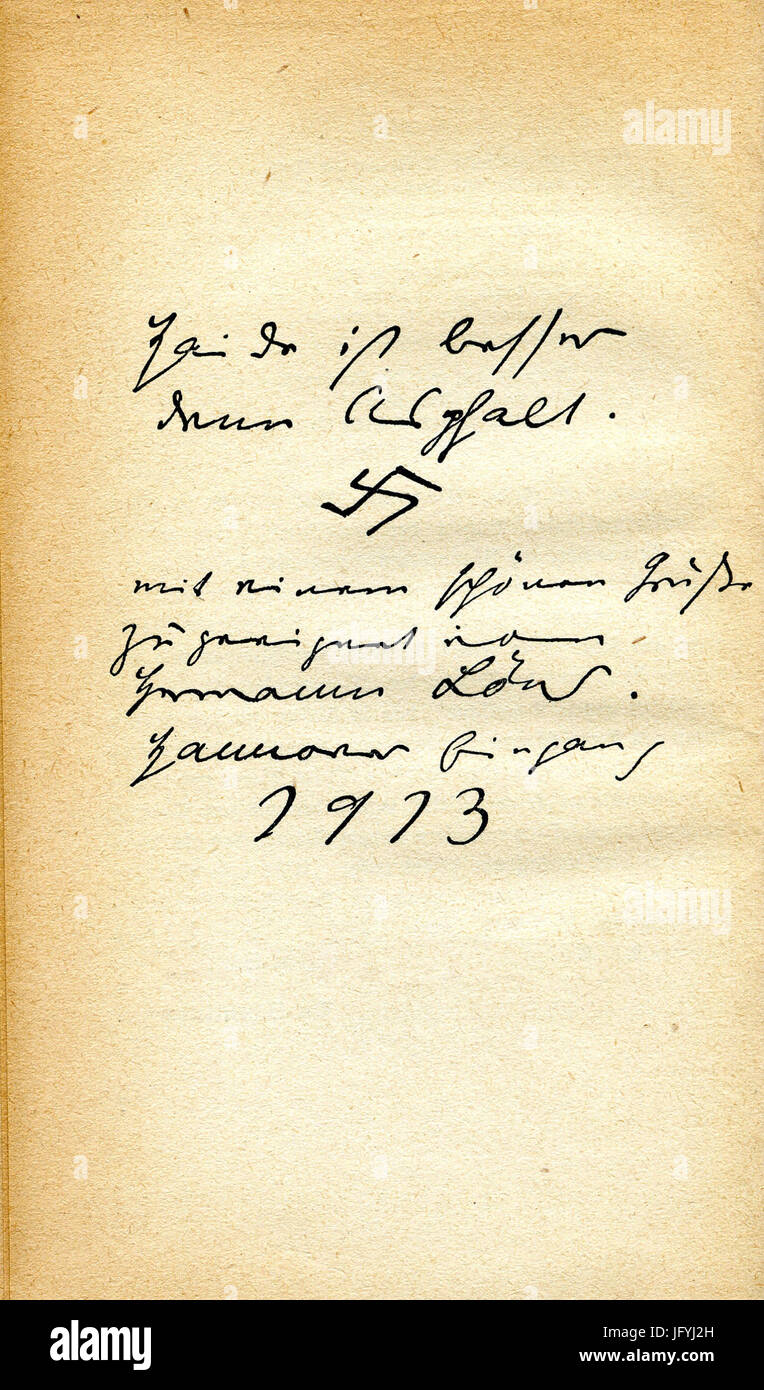 Haide ist besser
denn Asphalt.
卐
mit einem schönen Gruße
zugeeignet von
Hermann Löns.
Hannover Eingang
1913
alamy
alamy
alamy
alamy
Image ID: JFYJ2H
www.alamy.com